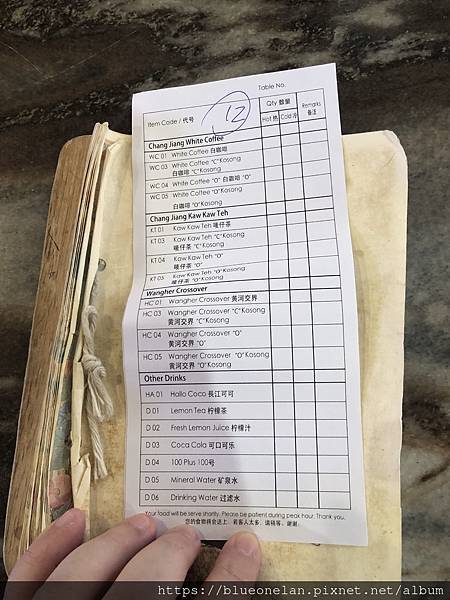 Table No.
12
Item Code / 代号
Qty 数量
Remarks
备注
Hot 热
Cold 冷
Chang Jiang White Coffee
WC 01 White Coffee 白咖啡
WC 03 White Coffee "C"Kosong
白咖啡 "C"Kosong
WC 04 White Coffee "O" 白咖啡 "O"
WC 05 White Coffee"O"Kosong
白咖啡 "O"Kosong
Chang Jiang Kaw Kaw Teh
KT 01 Kaw Kaw Teh 唛仔茶
KT 03 Kaw Kaw Teh "C"Kosong
唛仔茶 "C"Kosong
KT 04 Kaw Kaw Teh "O"
唛仔茶 "O"
KT 05 Kaw Kaw Teh "O"Kosong
唛仔茶 "O"Kosong
Wangher Crossover
HC 01 Wangher Crossover 黄河交界
HC 03 Wangher Crossover "C"Kosong
黄河交界 "C"Kosong
HC 04 Wangher Crossover "O"
黄河交界 "O"
HC 05 Wangher Crossover "O"Kosong
黄河交界 "O"Kosong
Other Drinks
HA 01 Hallo Coco 長江可可
D 01 Lemon Tea 柠檬茶
D 02 Fresh Lemon Juice 柠檬汁
D 03 Coca Cola 可口可乐
D 04 100 Plus 100号
D 05 Mineral Water 矿泉水
D 06 Drinking Water 过滤水
Your food will be serve shortly. Please be patient during peak hour. Thank you.
您的食物将会送上．若客人太多．请稍等．谢谢．
https://blueonelan.pixnet.net/album